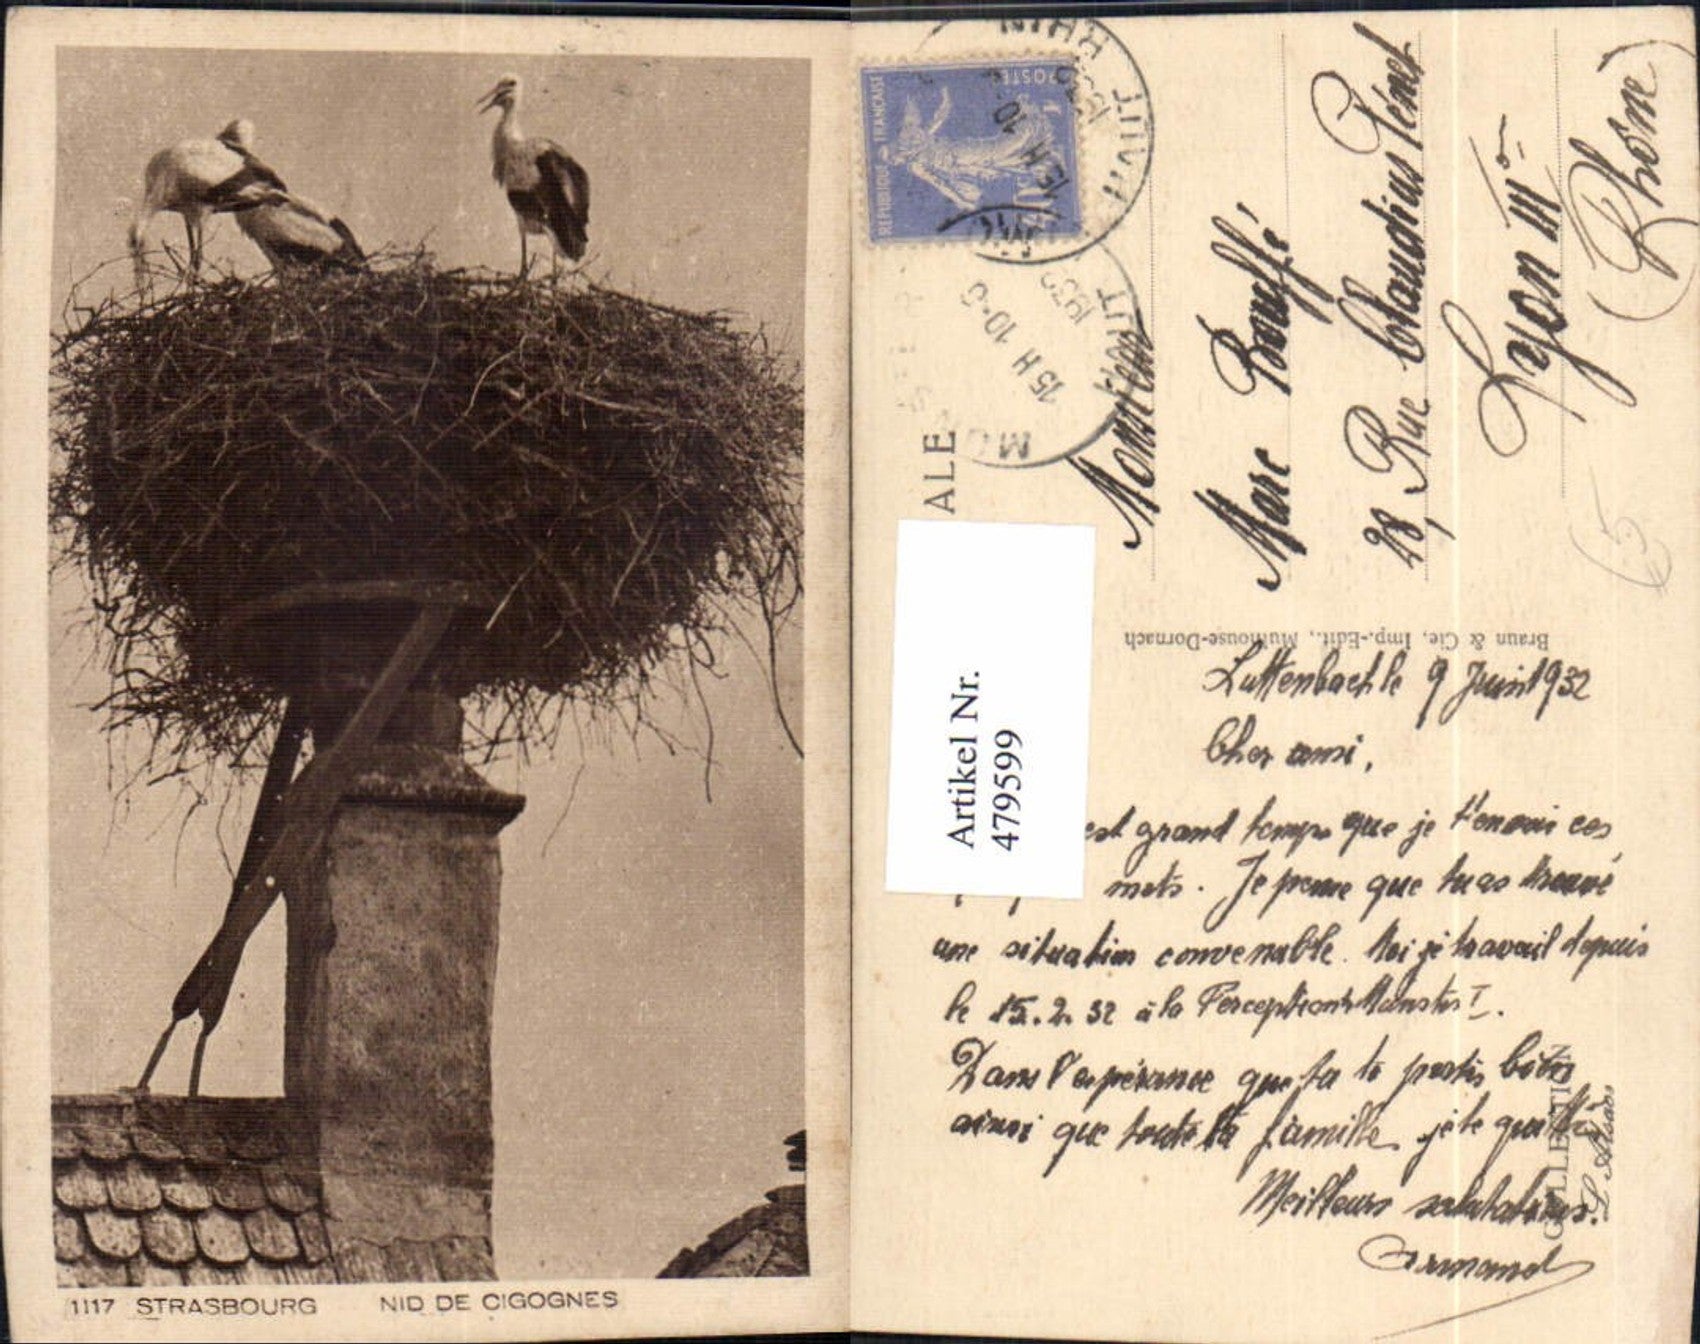 1117 STRASBOURG NID DE CIGOGNES
RHIN
POSTES
REPUBLIQUE FRANÇAISE
15 H 10-6
1932
ALE
Monsieur
Marc Bouffé
28, Rue Claudius Pénet
Lyon III
(Rhône)
65
Artikel Nr.
4795599
Braun & Cie, Imp.-Edit., Mulhouse-Dornach
COLLECTION
L'Alsace
Luttenbach le 9 Juin 1932
Cher ami,
est grand temps que je t'envoi ces
mots. Je pense que tu as trouvé
une situation convenable. Moi je travail depuis
le 15.2.32 à la Perception Munster I.
Dans l'espérance que ta te portes bien
ainsi que toute ta famille je te quitte
Meilleurs salutations.
Armand